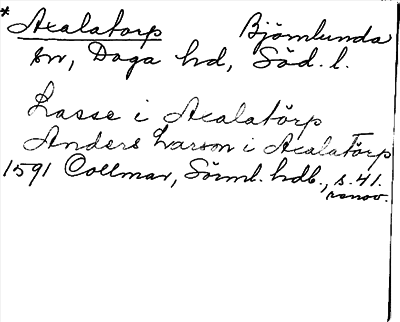 * Axalatorp Björnlunda
sn, Daga hd, Söd. l.
Lasse i Axalatörp
Anders Larson i Axalatörp
1591 Collmar, Sörml. hdb., s. 41.